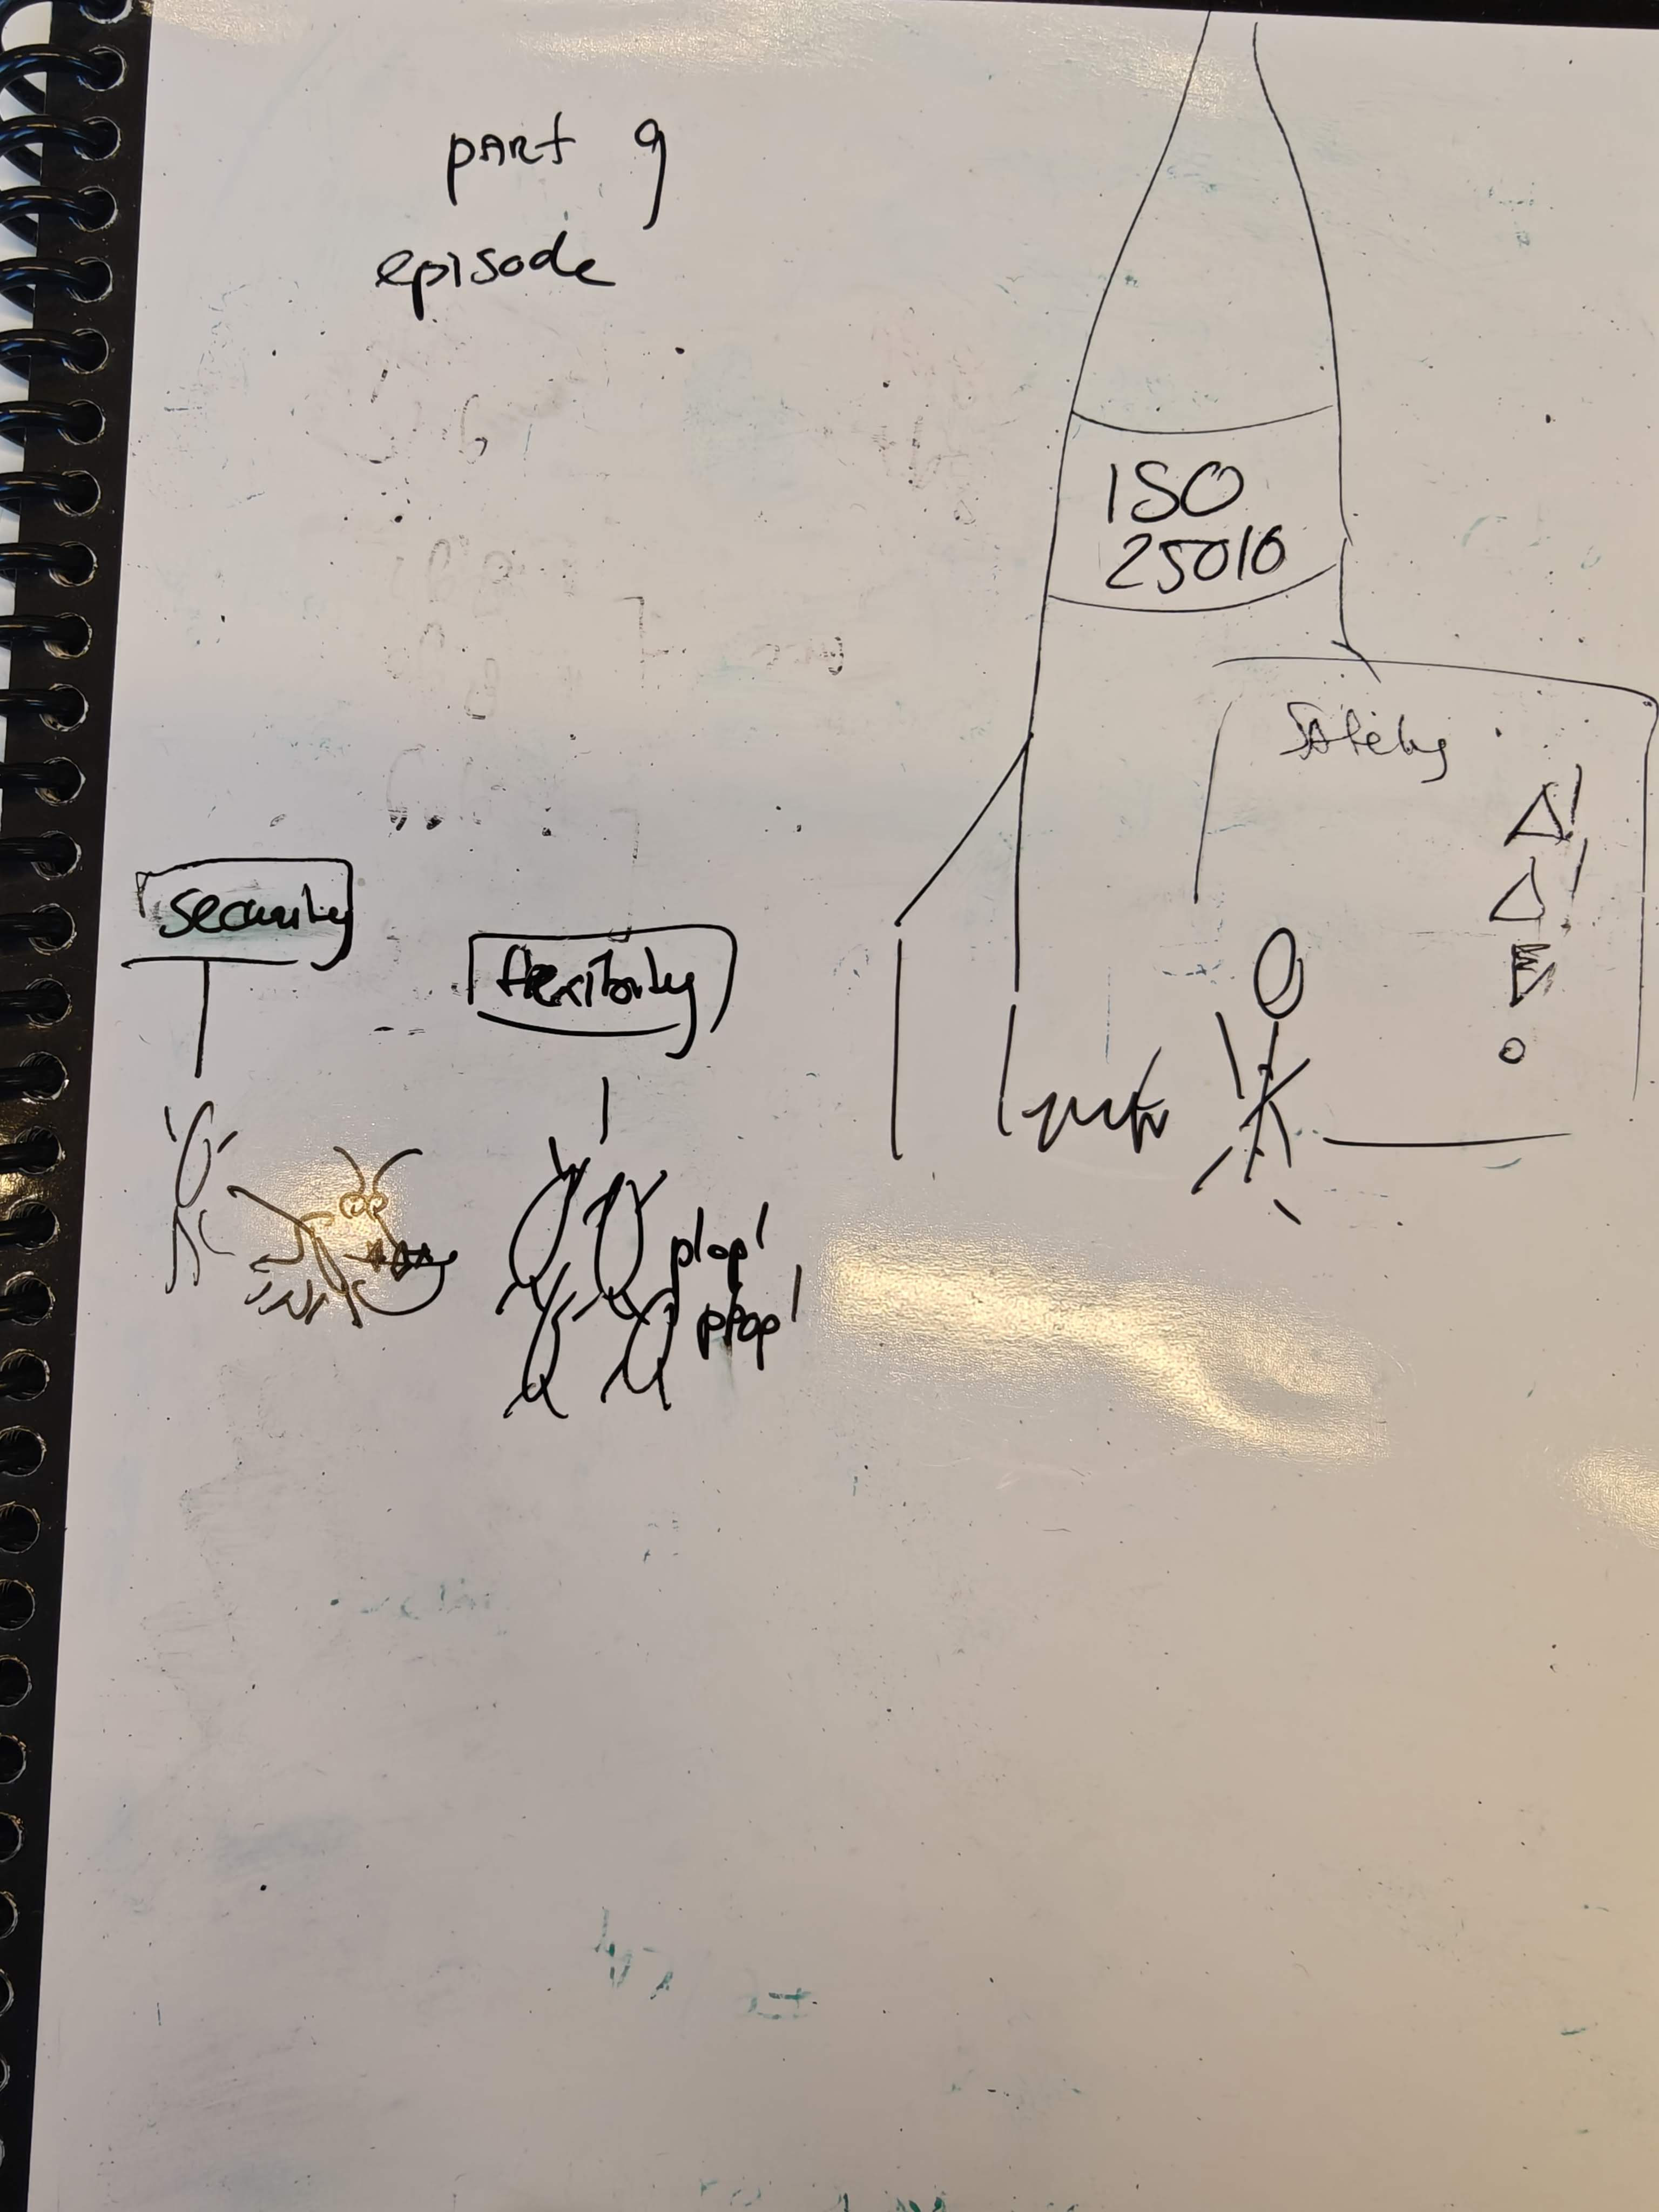 part 9
episode
ISO
25010
Safety
security
flexibility
plop!
plop!